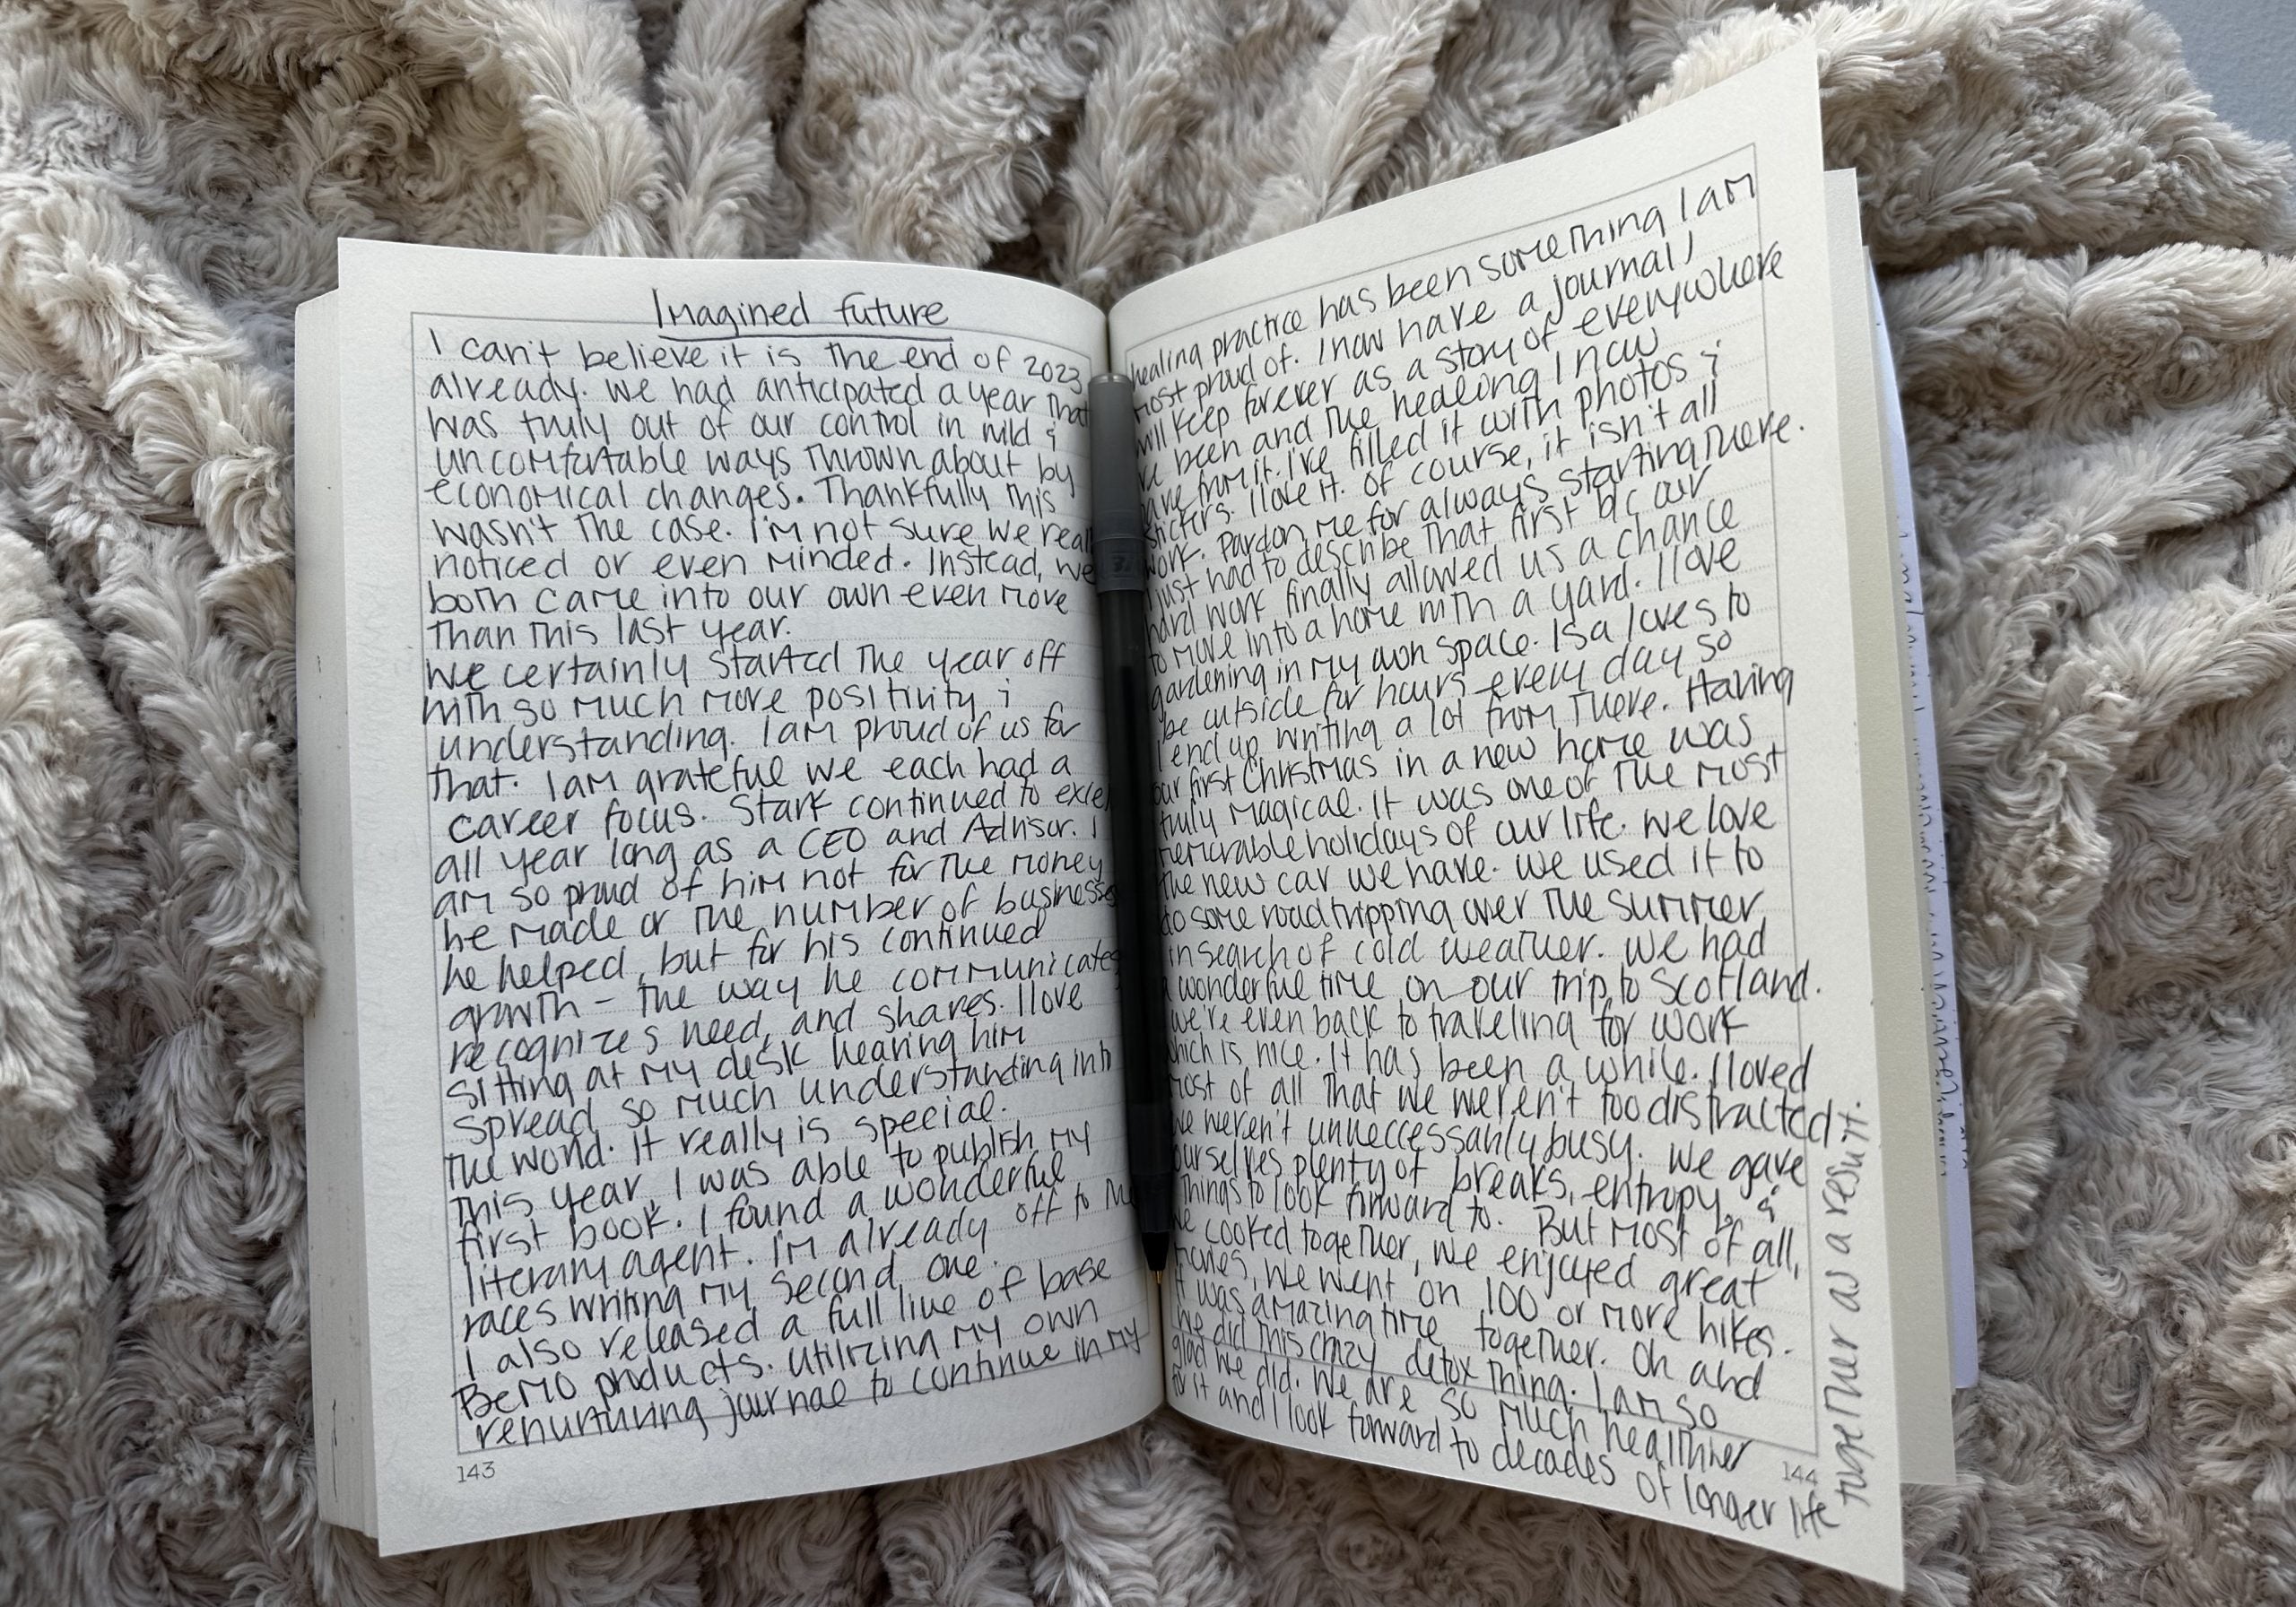 Imagined future
I can't believe it is the end of 2023
already. We had anticipated a year that
was truly out of our control in wild &
uncomfortable ways thrown about by
economical changes. Thankfully this
wasn't the case. I'm not sure we reall
noticed or even minded. Instead, we
both came into our own even more
than this last year.
We certainly started the year off
with so much more positivity &
understanding. I am proud of us for
that. I am grateful we each had a
career focus. Stark continued to excel
all year long as a CEO and Advisor. I
am so proud of him not for the money
he made or the number of businesses
he helped, but for his continued
growth – the way he communicates
recognizes need, and shares. I love
sitting at my desk hearing him
spread so much understanding into
the world. It really is special.
This year, I was able to publish my
first book. I found a wonderful
literary agent. I'm already off to the
races writing my second one.
I also released a full line of base
BeMo products. Utilizing my own
renurturing journal to continue in my
143
healing practice has been something I am
most proud of. I now have a journal I
will keep forever as a story of everywhere
I've been and the healing I now
have from it. I've filled it with photos &
stickers. I love it. Of course, it isn't all
work. Pardon me for always starting there.
I just had to describe that first b/c our
hard work finally allowed us a chance
to move into a home with a yard. I love
gardening in my own space. Isa loves to
be outside for hours every day so
I end up writing a lot from there. Having
our first Christmas in a new home was
truly magical. It was one of the most
memorable holidays of our life. We love
the new car we have. We used it to
do some roadtripping over the summer
in search of cold weather. We had
a wonderful time on our trip to Scotland.
We're even back to traveling for work
which is nice. It has been a while. I loved
most of all that we weren't too distracted.
We weren't unneccessarily busy. We gave
ourselves plenty of breaks, entropy, &
things to look forward to. But most of all,
we cooked together, we enjoyed great
movies, we went on 100 or more hikes.
It was amazing time together. Oh and
we did this crazy detox thing. I am so
glad we did. We are so much healthier
for it and I look forward to decades of longer life
together as a result.
144